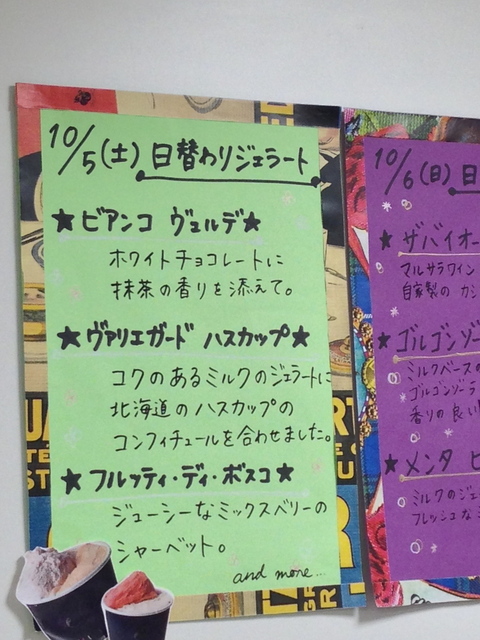 10/5(土) 日替わりジェラート
★ビアンコ ヴェルデ★
ホワイトチョコレートに
抹茶の香りを添えて。
★ヴァリエガード ハスカップ★
コクのあるミルクのジェラートに
北海道のハスカップの
コンフィチュールを合わせました。
★フルッティ・ディ・ボスコ★
ジューシーなミックスベリーの
シャーベット。
and more...
10/6(日) 日
★ザバイオー
マルサラワイン
自家製の カシ
★ゴルゴンゾー
ミルクベースの
ゴルゴンゾーラ
香りの良い
★メンタ ビ
ミルクのジェ
フレッシュなミ